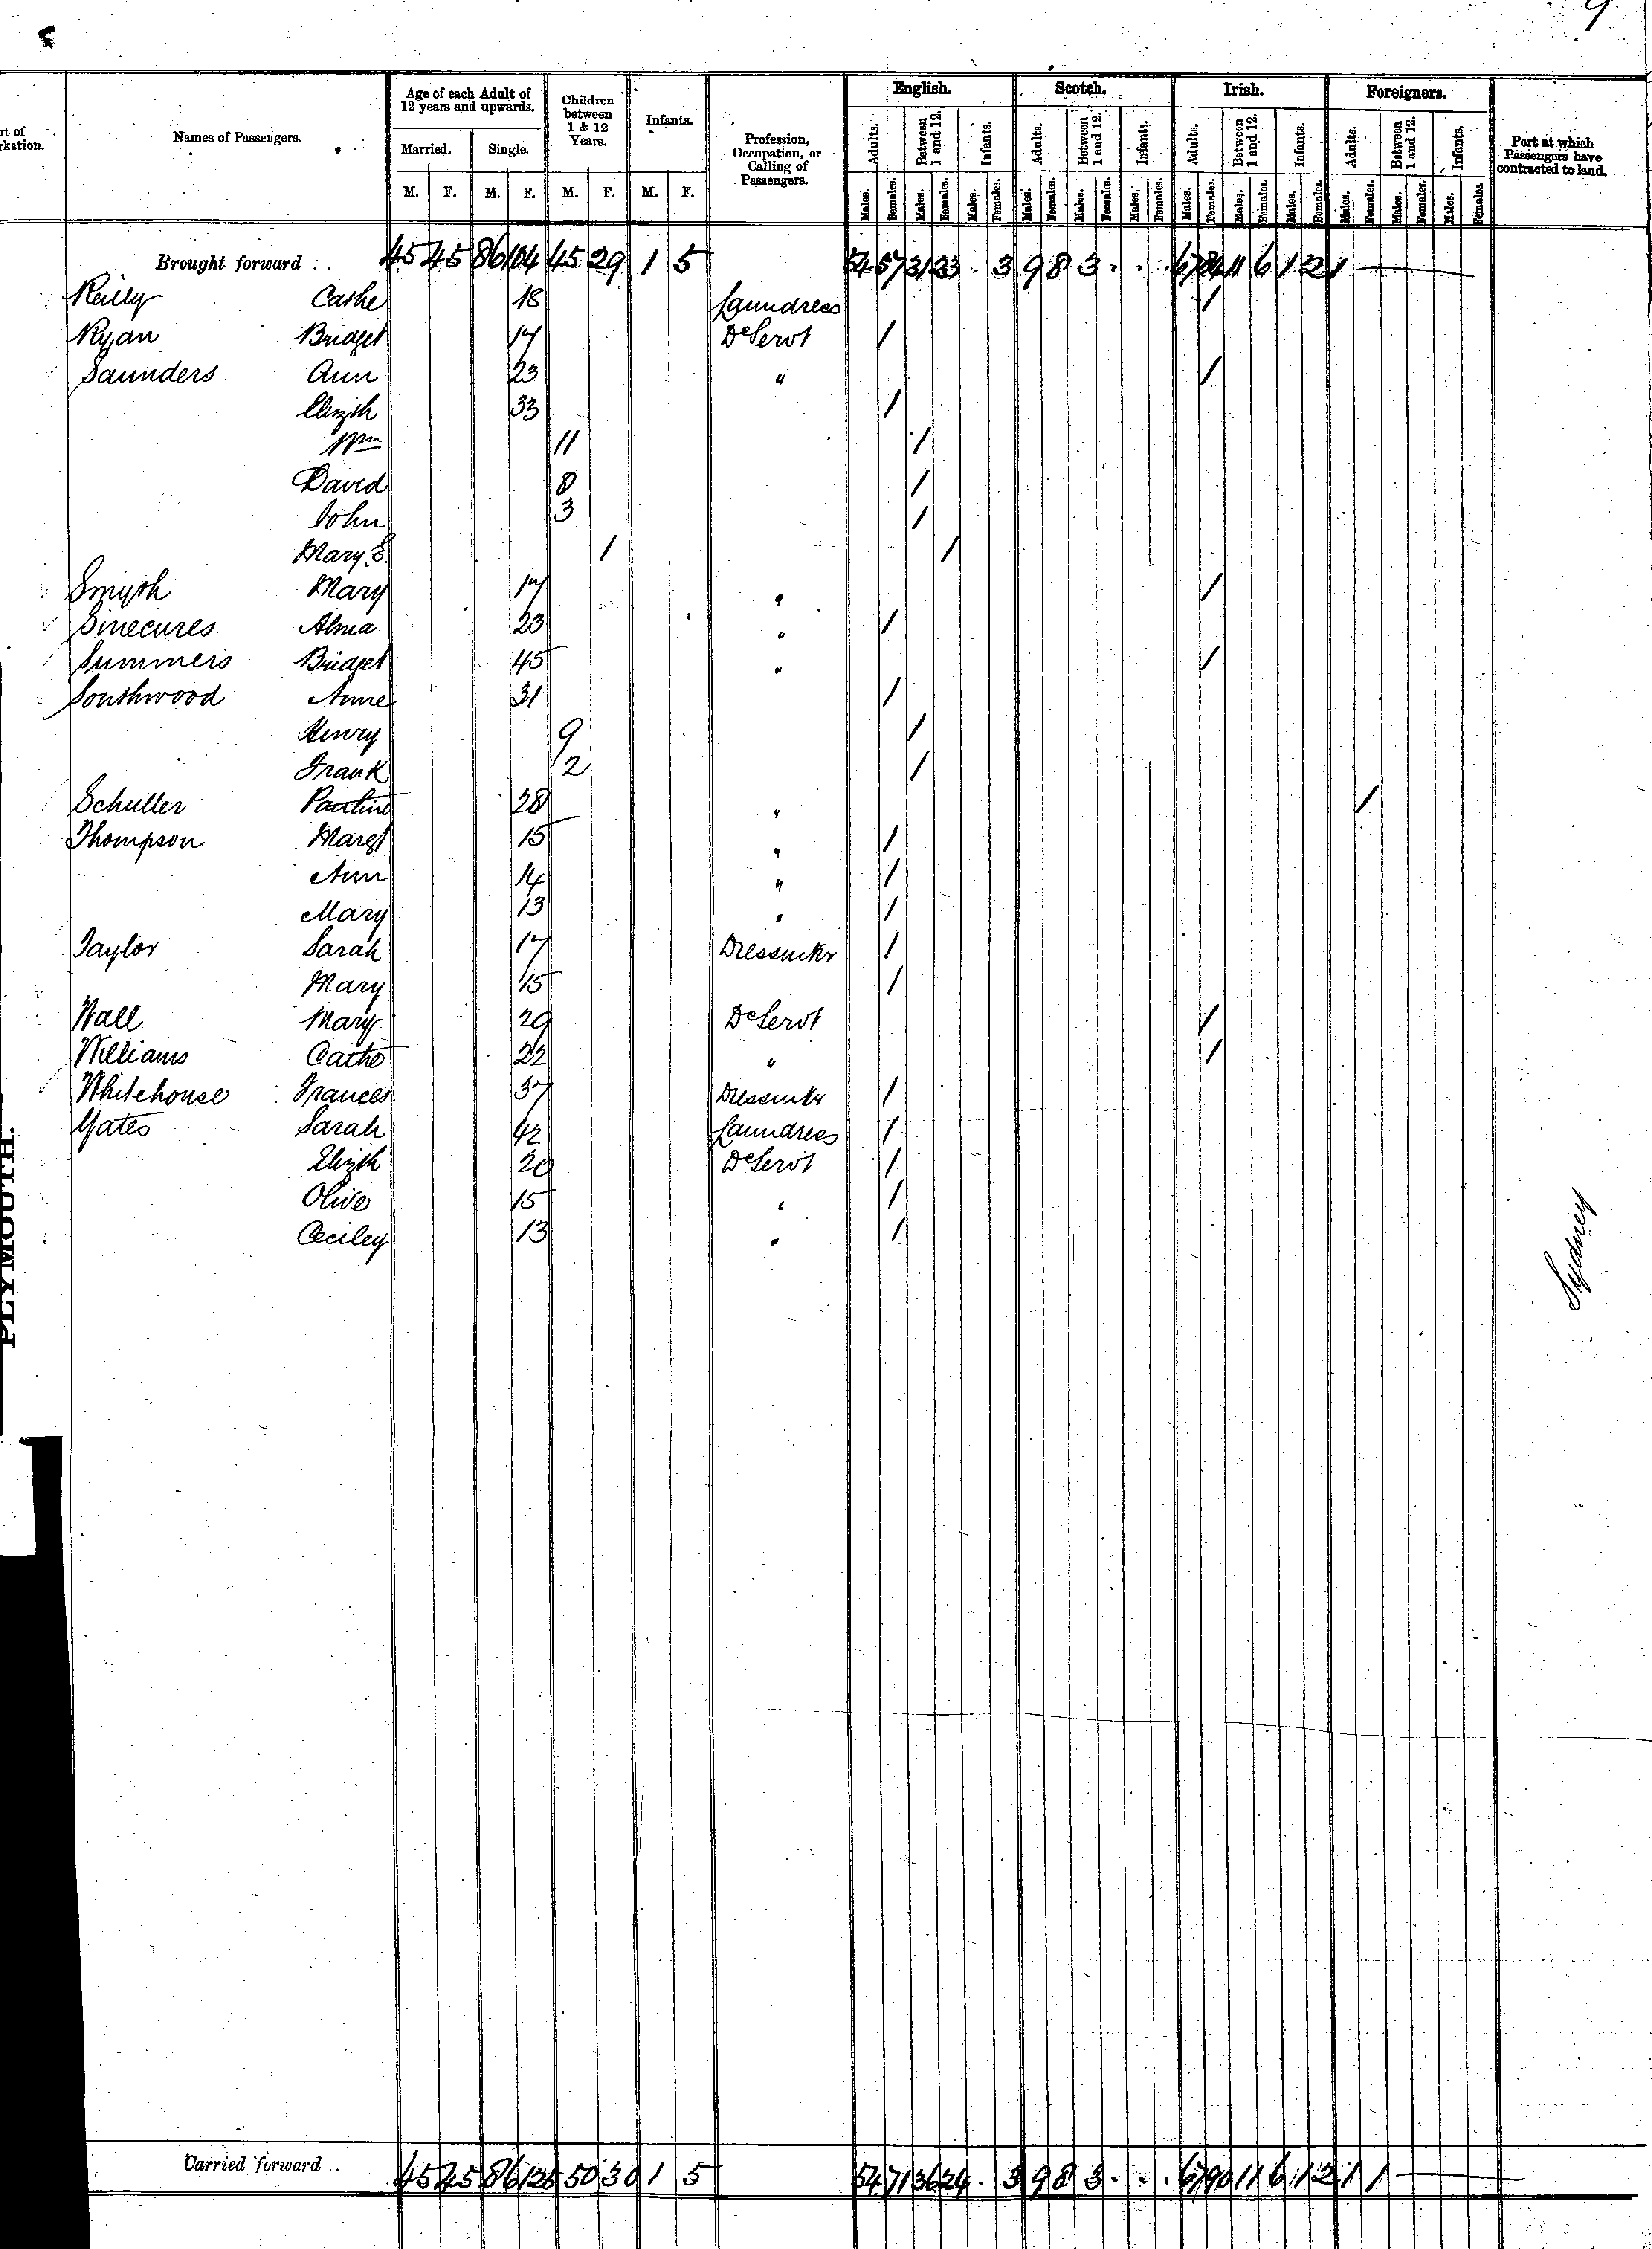 9
English. Scotch. Irish. Foreigners.
Age of each Adult of 12 years and upwards.
Children between 1 & 12 Years.
Infants.
rt of rkation.
Names of Passengers.
Profession, Occupation, or Calling of Passengers.
Adults. Between 1 and 12. Infants. Adults. Between 1 and 12. Infants. Adults. Between 1 and 12. Infants. Adults. Between 1 and 12. Infants.
Port at which Passengers have contracted to land.
Married. Single.
M. F. M. F. M. F. M. F. Males. Females. Males. Females. Males. Females. Males. Females. Males. Females. Males. Females. Males. Females. Males. Females. Males. Females. Males. Females. Males. Females. Males. Females.
Brought forward .. 45 45 86 104 45 29 1 5 54 57 31 23 . 3 9 8 3 . . . 67 84 11 6 1 2 1
Reilly Cathe 18 Laundress /
Ryan Bridget 17 De Servt /
Saunders Ann 23 " /
Elizth 33 /
Wm 11 /
David 8 /
John 3 /
Mary E. 1 /
Smyth Mary 17 " /
Sinecures Alma 23 " /
Summers Bridget 45 " /
Southwood Anne 31 /
Henry 9 /
Frank 2 /
Schuller Pauline 28 " /
Thompson Margt 15 " /
Ann 14 " /
Mary 13 " /
Taylor Sarah 17 Dressmkr /
Mary 15 /
Wall Mary 29 De Servt /
Williams Cathe 22 " /
Whitehouse Frances 37 Dressmkr /
Yates Sarah 42 Laundress /
Elizth 20 De Servt /
Olive 15 " /
Ceciley 13 " /
PLYMOUTH.
Sydney
Carried forward .. 45 45 86 125 50 30 1 5 54 71 36 24 . 3 9 8 3 . . . 67 90 11 6 1 2 1 1